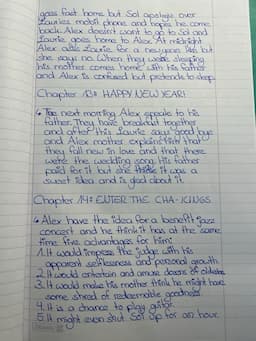 goes fast home but Sol apologs over
Lauries mobil phone and hopes he come
back. Alex doesn't want to go to Sol and
Laurie goes home to Alex. At midnight
Alex asks Laurie for a new year kiss but
she says no. When they were sleeping
his mother comes home with his father
and Alex is confused but pretends to sleep.
Chapter 13: HAPPY NEW YEAR!
The next morning Alex speaks to his
father. They have breakfast together
and after this Laurie says good bye
and Alex mother explains him that
they fall new in love and that there
were the wedding song. His father
paid for it but she thinks it was a
sweet idea and is glad about it.
Chapter 14: ENTER THE CHA-KINGS
Alex have the idea for a benefit jazz
concert and he think it has at the same
time five advantages for him:
1. It would impress the judge with his
apparent selflessness and personal growth
2. It would entertain and amuse dozens of oldsters
3. It would make his mother think he might have
some shred of redeemable goodness
4. It is a chance to play guitar.
5. It might even shut Sol up for an hour.